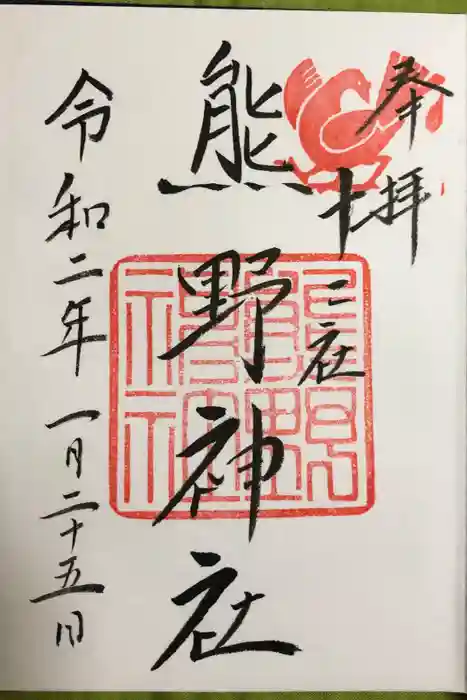 奉拝
十二社
熊野神社
令和二年一月二十五日